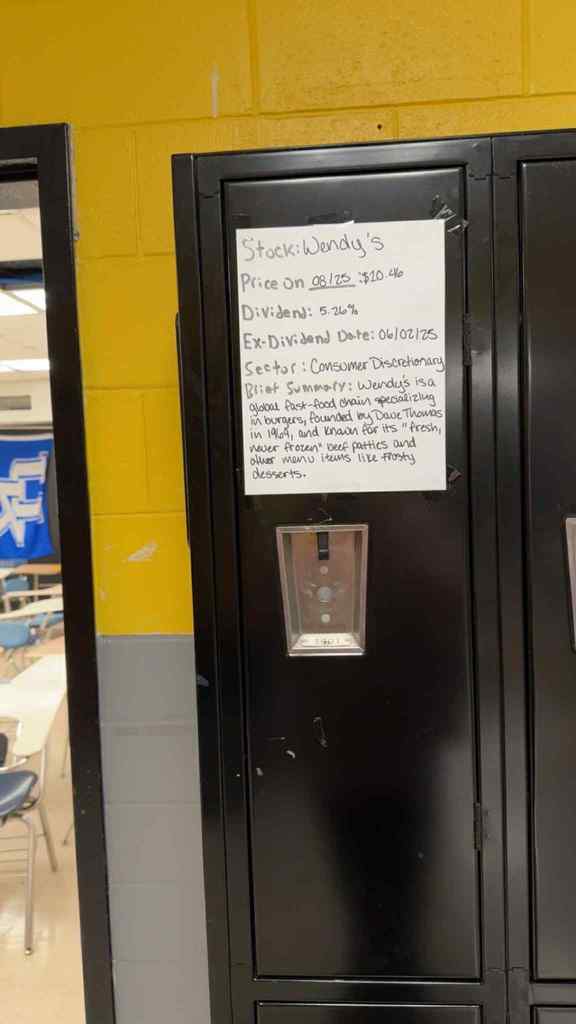 Stock: Wendy's
Price on 08/25 : $10.46
Dividend: 5.26%
Ex-Dividend Date: 06/02/25
Sector: Consumer Discretionary
Brief Summary: Wendy's is a
global fast-food chain specializing
in burgers, founded by Dave Thomas
in 1969, and known for its "fresh,
never frozen" beef patties and
other menu items like frosty
desserts.